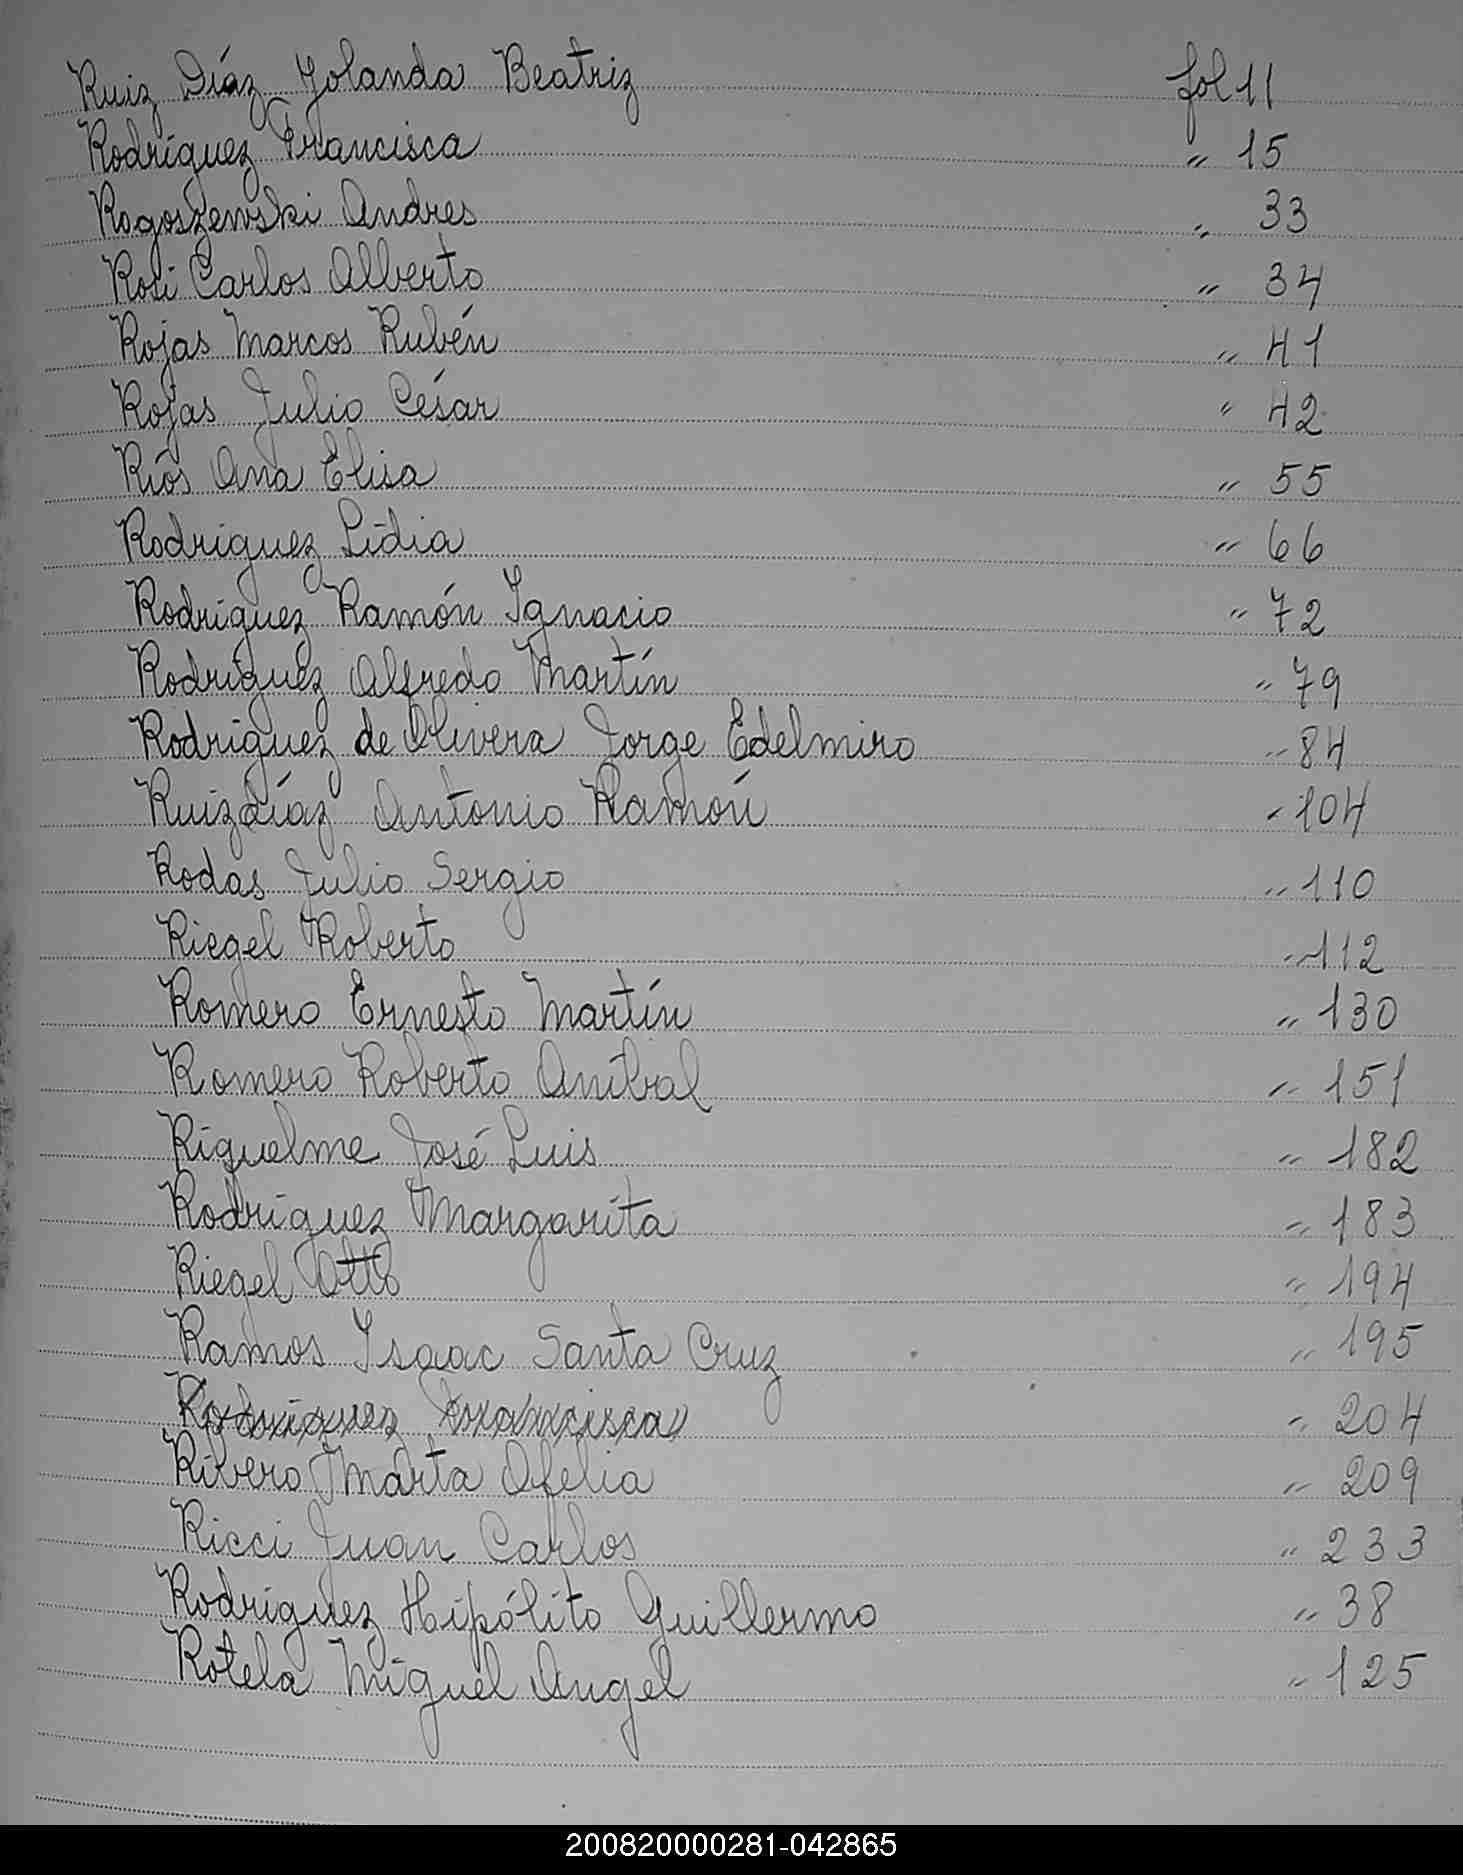 Ruiz Díaz Yolanda Beatriz fol 11
Rodríguez Francisca " 15
Rogoszewski Andres " 33
Rosi Carlos Alberto " 34
Rojas Marcos Rubén " 41
Rojas Julio César " 42
Ríos Ana Elisa " 55
Rodríguez Lidia " 66
Rodríguez Ramón Ignacio " 72
Rodríguez Alfredo Martín " 79
Rodríguez de Olivera Jorge Edelmiro " 84
Ruizdíaz Antonio Ramón " 104
Rodas Julio Sergio " 110
Riegel Roberto " 112
Romero Ernesto Martín " 130
Romero Roberto Aníbal " 151
Riquelme José Luis " 182
Rodríguez Margarita " 183
Riegel Otto " 194
Ramos Isaac Santa Cruz " 195
Rodríguez Francisca " 204
Ribero Marta Ofelia " 209
Ricci Juan Carlos " 233
Rodríguez Hipólito Guillermo " 38
Rotela Miguel Angel " 125
200820000281-042865